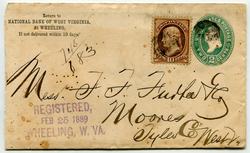 Return to
NATIONAL BANK OF WEST VIRGINIA,
At WHEELING,
If not delivered within 10 days
No 83
Mess. F. F.
Moores
Tyler Co West Va
REGISTERED,
FEB 25 1889
WHEELING, W. VA.